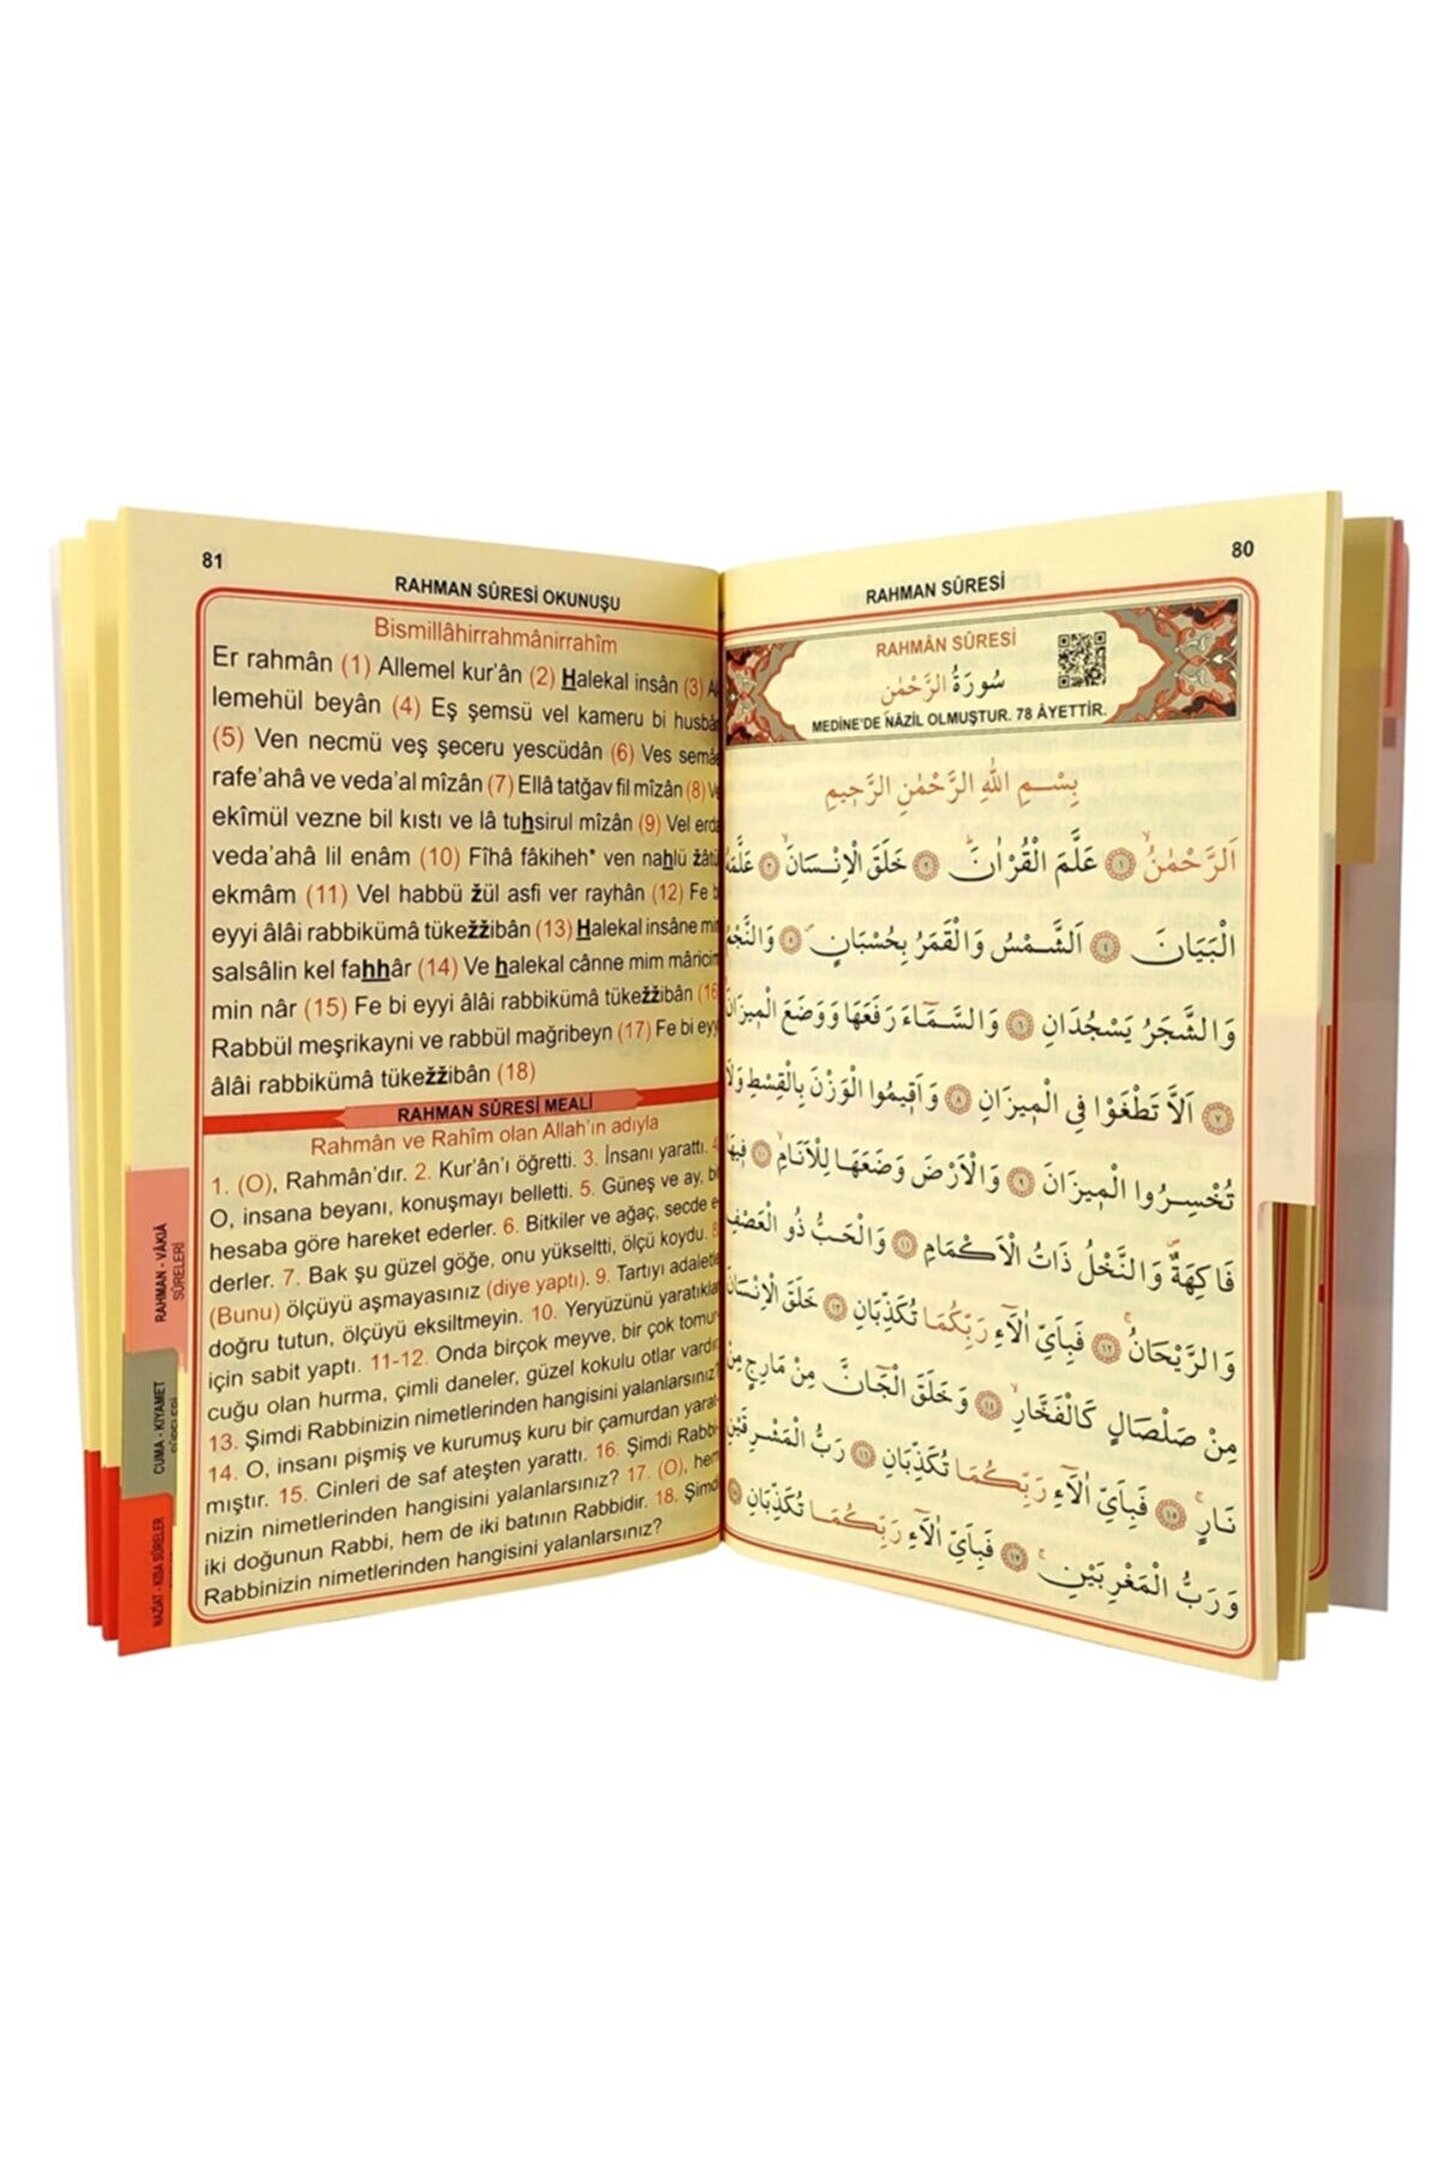 80
RAHMAN SÛRESİ
RAHMÂN SÛRESİ
سُورَةُ الرَّحْمٰنِ
MEDİNE'DE NÂZİL OLMUŞTUR. 78 ÂYETTİR.
بِسْــمِ اللّٰهِ الرَّحْمٰنِ الرَّح۪يمِ
اَلرَّحْمٰنُۙ ﴿١﴾ عَلَّمَ الْقُرْاٰنَۜ ﴿٢﴾ خَلَقَ الْاِنْسَانَۙ ﴿٣﴾ عَلَّمَهُ
الْبَيَانَ ﴿٤﴾ اَلشَّمْسُ وَالْقَمَرُ بِحُسْبَانٍۖ ﴿٥﴾ وَالنَّجْمُ
وَالشَّجَرُ يَسْجُدَانِ ﴿٦﴾ وَالسَّمَٓاءَ رَفَعَهَا وَوَضَعَ الْم۪يزَانَۙ
﴿٧﴾ اَلَّا تَطْغَوْا فِي الْم۪يزَانِ ﴿٨﴾ وَاَق۪يمُوا الْوَزْنَ بِالْقِسْطِ وَلَا
تُخْسِرُوا الْم۪يزَانَ ﴿٩﴾ وَالْاَرْضَ وَضَعَهَا لِلْاَنَامِۙ ﴿١٠﴾ ف۪يهَا
فَاكِهَةٌۖ وَالنَّخْلُ ذَاتُ الْاَكْمَامِ ﴿١١﴾ وَالْحَبُّ ذُو الْعَصْفِ
وَالرَّيْحَانُۚ ﴿١٢﴾ فَبِاَيِّ اٰلَٓاءِ رَبِّكُمَا تُكَذِّبَانِ ﴿١٣﴾ خَلَقَ الْاِنْسَانَ
مِنْ صَلْصَالٍ كَالْفَخَّارِۙ ﴿١٤﴾ وَخَلَقَ الْجَٓانَّ مِنْ مَارِجٍ مِنْ
نَارٍۚ ﴿١٥﴾ فَبِاَيِّ اٰلَٓاءِ رَبِّكُمَا تُكَذِّبَانِ ﴿١٦﴾ رَبُّ الْمَشْرِقَيْنِ
وَرَبُّ الْمَغْرِبَيْنِۚ ﴿١٧﴾ فَبِاَيِّ اٰلَٓاءِ رَبِّكُمَا تُكَذِّبَانِ ﴿١٨﴾
81
RAHMAN SÛRESİ OKUNUŞU
Bismillâhirrahmânirrahîm
Er rahmân (1) Allemel kur'ân (2) Halekal insân (3) Al
lemehül beyân (4) Eş şemsü vel kameru bi husbân
(5) Ven necmü veş şeceru yescüdân (6) Ves semâe
rafe'ahâ ve veda'al mîzân (7) Ellâ tatğav fil mîzân (8) Ve
ekîmül vezne bil kıstı ve lâ tuhsirul mîzân (9) Vel erda
veda'ahâ lil enâm (10) Fîhâ fâkiheh* ven nahlü žâtü
ekmâm (11) Vel habbü žül asfi ver rayhân (12) Fe b
eyyi âlâi rabbikümâ tükežžibân (13) Halekal insâne min
salsâlin kel fahhâr (14) Ve halekal cânne mim mâricim
min nâr (15) Fe bi eyyi âlâi rabbikümâ tükežžibân (16
Rabbül meşrikayni ve rabbül mağribeyn (17) Fe bi eyy
âlâi rabbikümâ tükežžibân (18)
RAHMAN SÛRESİ MEALİ
Rahmân ve Rahîm olan Allah'ın adıyla
1. (O), Rahmân'dır. 2. Kur'ân'ı öğretti. 3. İnsanı yarattı. 4
O, insana beyanı, konuşmayı belletti. 5. Güneş ve ay, bi
hesaba göre hareket ederler. 6. Bitkiler ve ağaç, secde e-
derler. 7. Bak şu güzel göğe, onu yükseltti, ölçü koydu. 8
(Bunu) ölçüyü aşmayasınız (diye yaptı). 9. Tartıyı adaletle
doğru tutun, ölçüyü eksiltmeyin. 10. Yeryüzünü yaratıklar
için sabit yaptı. 11-12. Onda birçok meyve, bir çok tomur-
cuğu olan hurma, çimli daneler, güzel kokulu otlar vardır.
13. Şimdi Rabbinizin nimetlerinden hangisini yalanlarsınız?
14. O, insanı pişmiş ve kurumuş kuru bir çamurdan yarat-
mıştır. 15. Cinleri de saf ateşten yarattı. 16. Şimdi Rabbi-
nizin nimetlerinden hangisini yalanlarsınız? 17. (O), hem
iki doğunun Rabbi, hem de iki batının Rabbidir. 18. Şimdi
Rabbinizin nimetlerinden hangisini yalanlarsınız?
RAHMAN - VÂKIÂ
SÛRELERİ
CUMA - KIYAMET
NAZİAT - KISA SÛRELER